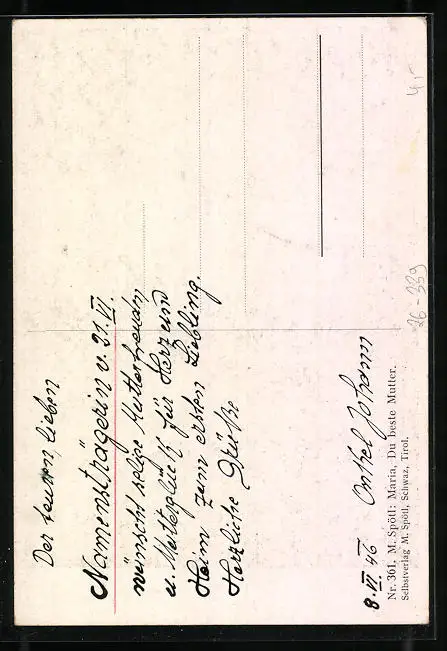 Der teuren, lieben
Namensträgerin v. 21. VI.
wünscht selige Mutterfreuden
u. Mutterglück für Herz und
Heim zum ersten Liebling.
Herzliche Grüße
Onkel Johann
8. VI. 46
Nr. 361. M. Spötl: Maria, Du beste Mutter.
Selbstverlag M. Spötl, Schwaz, Tirol.
26-339
4,-